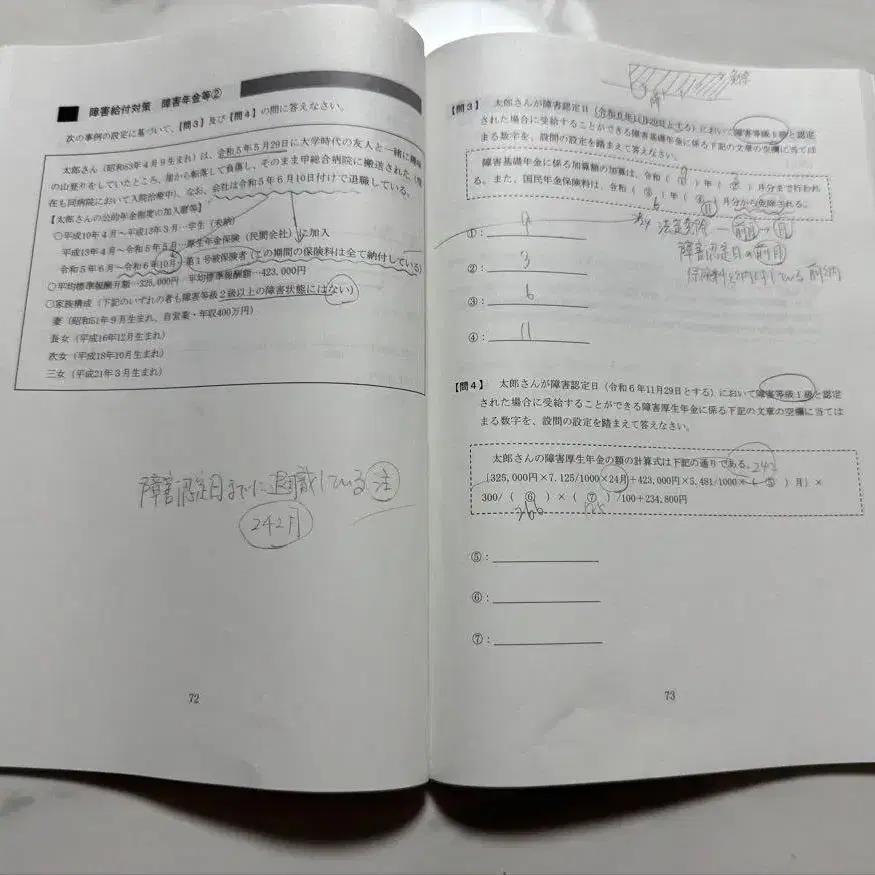 障害給付対策 障害年金等②
次の事例の設定に基づいて、【問3】及び【問4】の問に答えなさい。
太郎さん（昭和53年4月9生まれ）は、令和5年5月29日に大学時代の友人と一緒に
の山登りをしていたところ、崖から転落して負傷し、そのまま甲総合病院に搬送された（現
在も同病院において入院治療中）。なお、会社は令和5年6月10日付けで退職している。
【太郎さんの公的年金制度の加入歴等】
○平成10年4月～平成13年3月…学生（未納）
平成13年4月～令和5年5月…厚生年金保険（民間会社）に加入
令和5年6月～令和6年10月…第1号被保険者（この期間の保険料は全て納付している）
○平均標準報酬月額…325,000円 平均標準報酬額…423,000円
○家族構成（下記のいずれの者も障害等級2級以上の障害状態にはない）
妻（昭和51年9月生まれ、自営業・年収400万円）
長女（平成16年12月生まれ）
次女（平成18年10月生まれ）
三女（平成21年3月生まれ）
障害認定日までに退職している 注
242月
72
免除
【問3】 太郎さんが障害認定日（令和6年11月29日とする）において障害等級1級と認定
された場合に受給することができる障害基礎年金に係る下記の文章の空欄に当ては
まる数字を、設問の設定を踏まえて答えなさい。
障害基礎年金に係る加算額の加算は、令和（ ① ）年（ ② ）月分まで行われ
る。また、国民年金保険料は、令和（ ③ ）年（ ④ ）月分から免除される。
6 11
①： 9
法定免除 － 前月 → 月
障害認定日の前月
②： 3
保険料を納付している 前納
③： 6
④： 11
【問4】 太郎さんが障害認定日（令和6年11月29日とする）において障害等級1級と認定
された場合に受給することができる障害厚生年金に係る下記の文章の空欄に当ては
まる数字を、設問の設定を踏まえて答えなさい。
太郎さんの障害厚生年金の額の計算式は下記の通りである。 242
｛325,000円×7.125/1000×24月＋423,000円×5.481/1000×（ ⑤ ）月｝×
300/（ ⑥ ）×（ ⑦ ）/100＋234,800円
266 125
⑤：
⑥：
⑦：
73